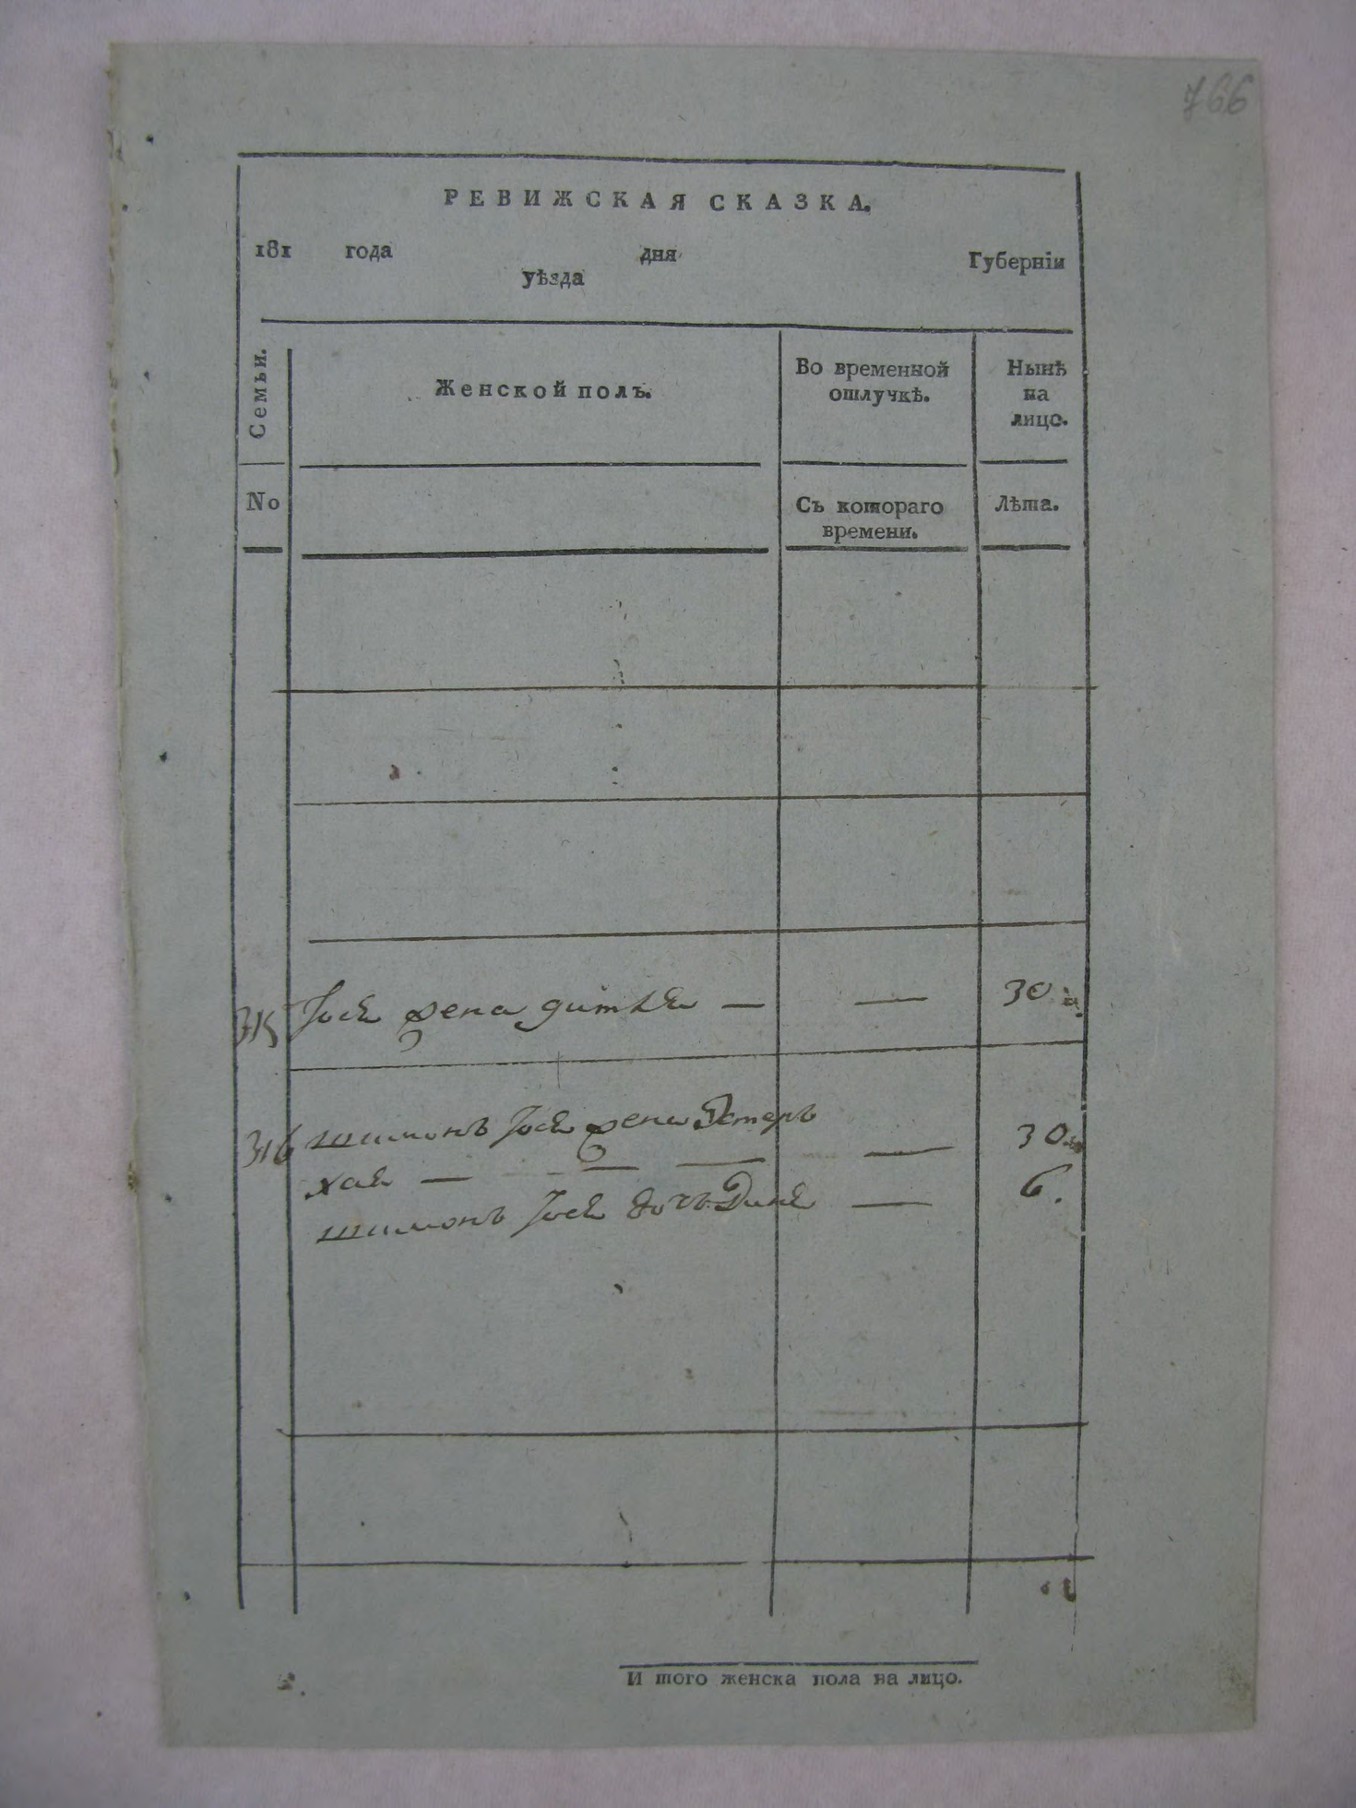 766
РЕВИЖСКАЯ СКАЗКА.
181 года дня Губерніи
уѣзда
Семьи. Женской полъ. Во временной отлучкѣ. Нынѣ на лицо.
No Съ котораго времени. Лѣта.
315 Іоск жена — — 30
316 шимонъ Іоск жена Эстеръ — 30
хая — — —
шимонъ Іоск дочь Дина — 6.
И того женска пола на лицо.